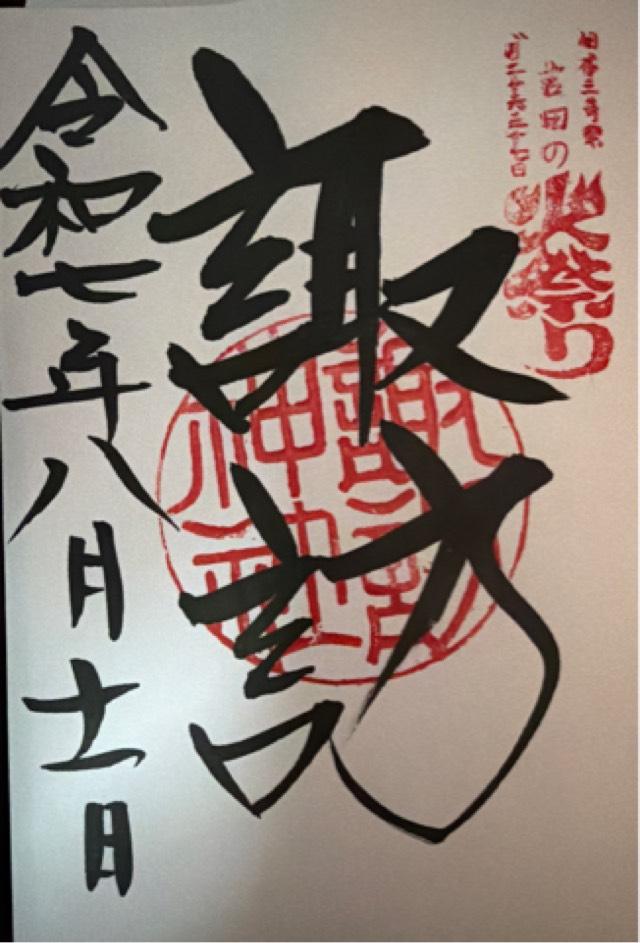 日本三奇祭
吉田の火祭り
八月二十六二十七日
諏訪
諏訪
神社
令和七年八月十一日